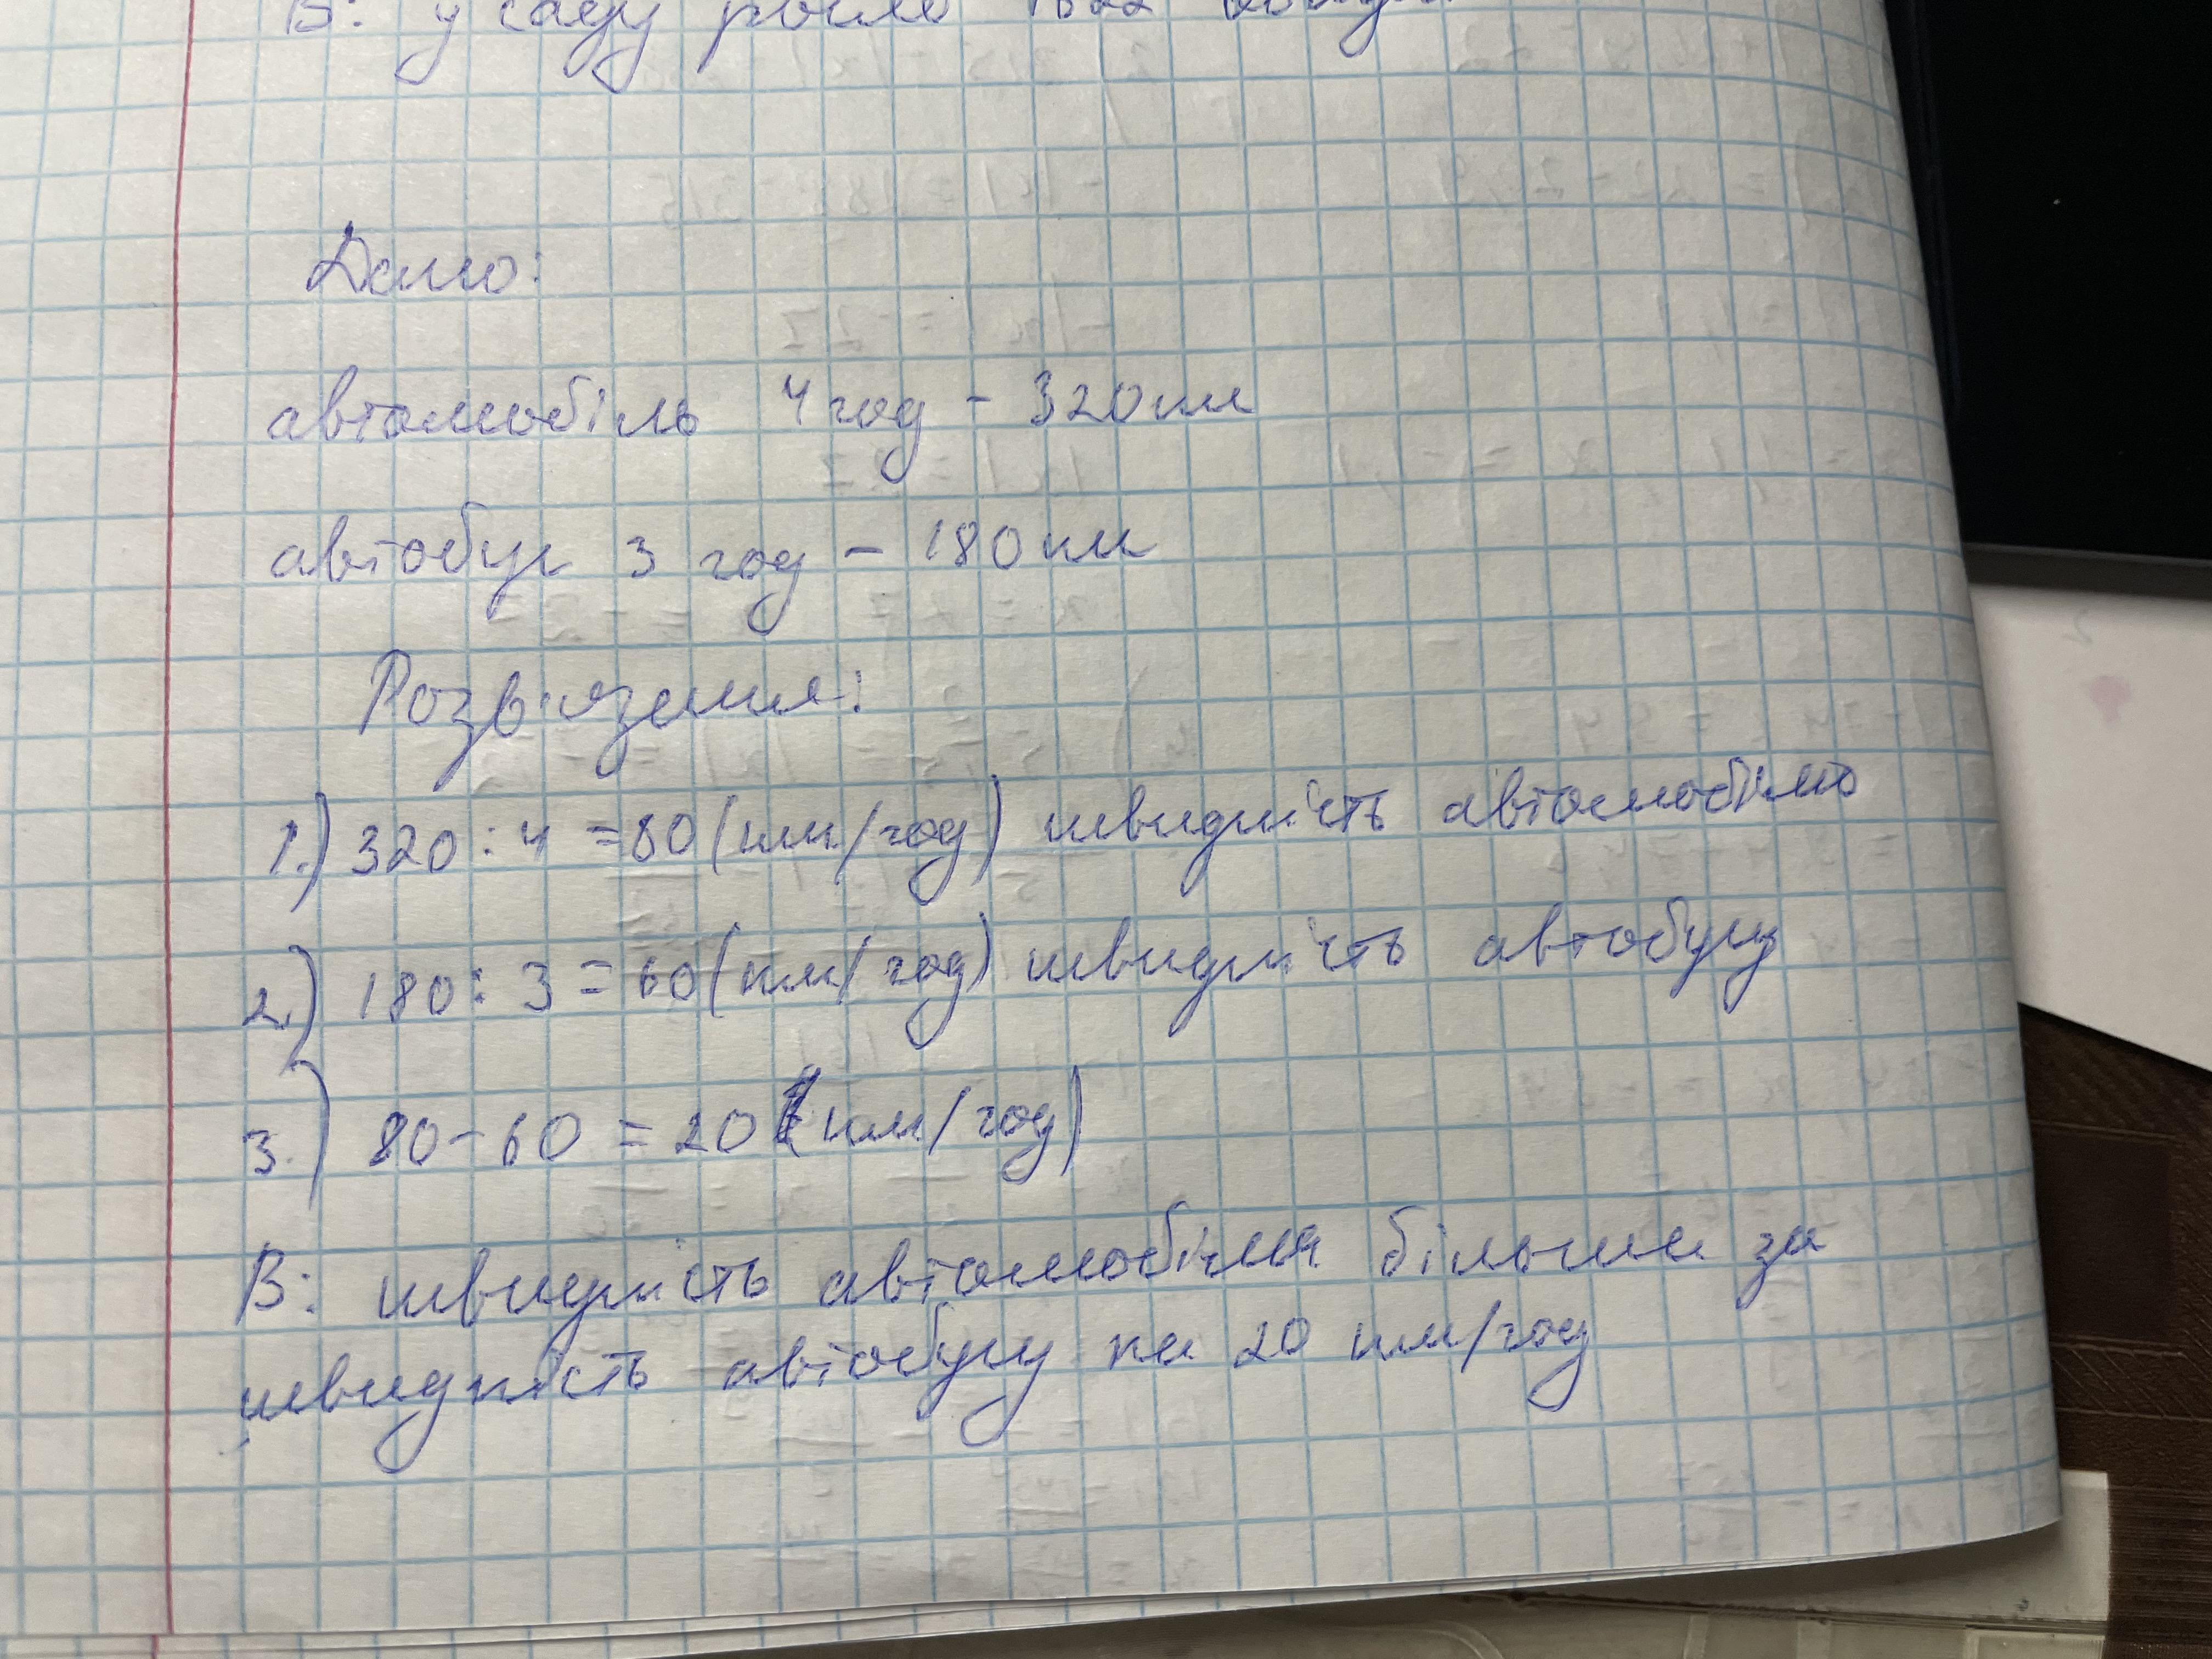 В: у саду росло 1622
Дано:
автомобіль 4 год - 320 км
автобус 3 год - 180 км
Розв'язання:
1.) 320 : 4 = 80 (км/год) швидкість автомобілю
2.) 180 : 3 = 60 (км/год) швидкість автобусу
3.) 80 - 60 = 20 (км/год)
В: швидкість автомобіля більша за
швидкість автобусу на 20 км/год